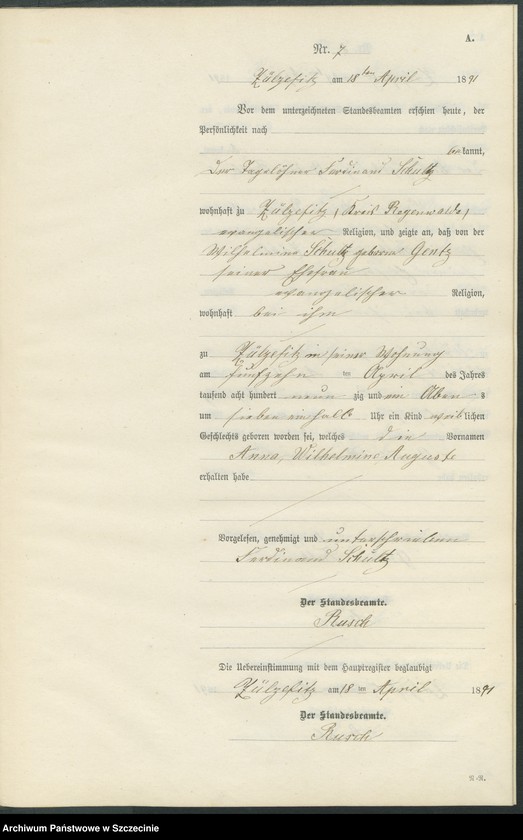 A.
Nr. 7
Zülzefitz am 18ten April 1891
Vor dem unterzeichneten Standesbeamten erschien heute, der
Persönlichkeit nach
bekannt,
der Tagelöhner Ferdinand Schultz
wohnhaft zu Zülzefitz, Kreis Regenwalde,
evangelischer Religion, und zeigte an, daß von der
Wilhelmine Schultz geborne Gentz
seiner Ehefrau
evangelischer Religion,
wohnhaft bei ihm
zu Zülzefitz in seiner Wohnung
am fünfzehn ten April des Jahres
tausend acht hundert neun zig und ein Abends
um sieben ein halb Uhr ein Kind weiblichen
Geschlechts geboren worden sei, welches die Vornamen
Anna, Wilhelmine, Auguste
erhalten habe
Vorgelesen, genehmigt und unterschrieben
Ferdinand Schultz
Der Standesbeamte.
Rusch
Die Uebereinstimmung mit dem Hauptregister beglaubigt
Zülzefitz am 18 ten April 1891
Der Standesbeamte.
Rusch
Archiwum Państwowe w Szczecinie